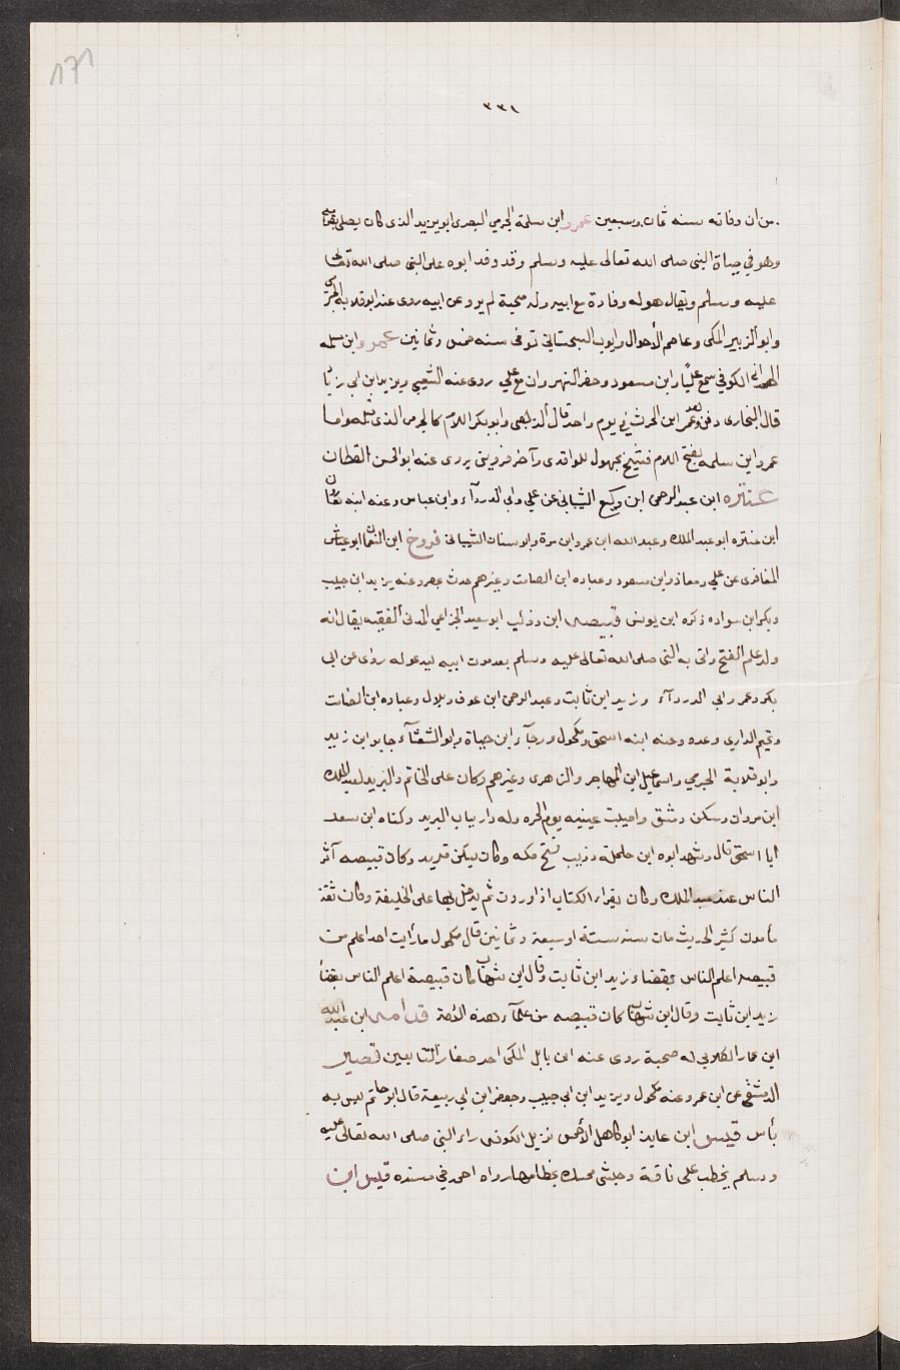 ١٧١
٣٣١
من ان وفاته سنه ثمان وسبعين عمرو ابن سلمة الجرمي البصرى ابويزيد الذى كان يصلى بقومه
وهو في حياة النبى صلى الله تعالى عليه وسلم وقد وفد ابوه على النبى صلى الله تعالى
عليه وسلم ويقال هو له وفادة مع ابيه وله صحبة لم يرو عن ابيه روى عنه ابوقلابه الجرمى
وابو الزبير المكى وعاصم الأحوال وايوب السجستاني توفى سنه خمس وثمانين عمرو ابن سلمه
الهمدانى الكوفي سمع عليا وابن مسعود وحضر النهروان مع علي روى عنه الشعبي ويزيد ابن ابي زياد
قال البخارى دفن وعمر ابن الحرث في يوم واحد قال الذهبى وابوبكر اللام كالجرمى الذى
عمرو ابن سلمه بفتح اللام فشيخ مجهول للواقدى وآخر قزوينى يروى عنه ابوالحسن القطان
عنتره ابن عبد الرحمن ابن وكيع الشيبانى عن علي وابي الدردآء وابن عباس وعنه ابنه
ابن عنتره ابو عبد الملك وعبد الله ابن عمرو ابن مرة وابو سنان الشيبانى فروخ ابن النعمان ابو عياش
المغافرى عن علي ومعاذ وابن مسعود وعباده ابن الصامت وغيرهم حدث بمصر وعنه يزيد ابن حبيب
وبكر ابن سواده ذكره ابن يونس قبيصه ابن ذذئب ابو سعيد الخزاعي المدنى الفقيه يقال انه
ولد عام الفتح واتى به النبى صلى الله تعالى عليه وسلم بعد موت ابيه ليدعو له روى عن ابى
بكر وعمر وابي الدردآء وزيد ابن ثابت وعبد الرحمن ابن عوف وبلال وعباده ابن الصامت
وتميم الدارى وعده وعنه ابنه اسحق ومكحول ورجآء ابن حياة وابو الشعثآء جابر ابن زيد
وابو قلابة الجرمي واسماعيل ابن المهاجر والزهرى وغيرهم وكان على الخاتم والبريد لعبد الملك
ابن مروان وسكن دمشق واصيبت عينيه يوم الحره وله دار بباب البريد وكناه ابن سعد
ابا اسحق قال وشهد ابوه ابن حلحلة ذؤيب فتح مكه وكان يسكن قديد وكان قبيصه آثر
الناس عند عبد الملك وكان يقراء الكتاب اذا وردت ثم يدخل بها على الخليفة وكان ثقة
مأمون كثير الحديث مات سنه ستة او سبعة وثمانين قال مكحول مارأيت احد اعلم من
قبيصه اعلم الناس بقضاء زيد ابن ثابت وقال ابن شهاب كان قبيصة اعلم الناس بقضاء
زيد ابن ثابت وقال ابن شهاب كان قبيصه من علمآء هذه الأمة قدامه ابن عبد الله
ابن عمار الكلابي له صحبة روى عنه ابن بابل المكى احد صغار التابعين قصير
الدمشقي عن ابن عمر وعنه مكحول ويزيد ابن ابي حبيب وجعفر ابن ابي ربيعة قال ابو حاتم ليس به
بأس قيس ابن عايذ ابو كاهل الأحمس نزيل الكوفه راء النبى صلى الله تعالى عليه
وسلم يخطب على ناقة وحبشى ممسك بخطامها رواه احمد في مسنده قيس ابن